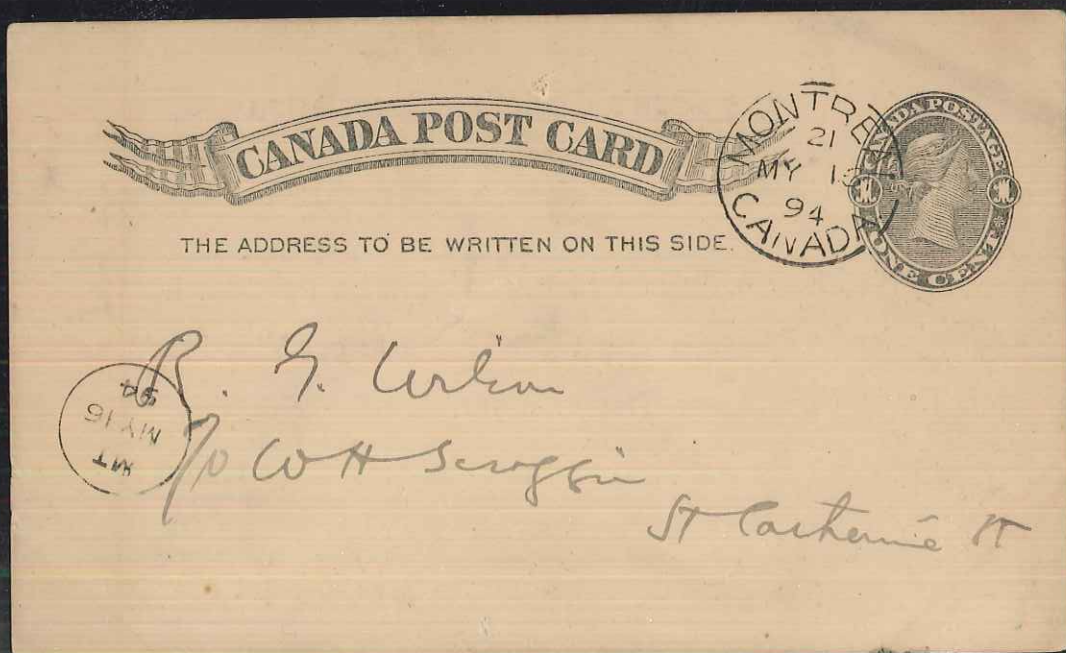 CANADA POST CARD
THE ADDRESS TO BE WRITTEN ON THIS SIDE.
MONTRE
21
MY 15
94
CANADA
CANADA POSTAGE
1 1
ONE CENT
R. G. Wilson
c/o W H Scroggie
St Catherine St
MT
MY 16
94